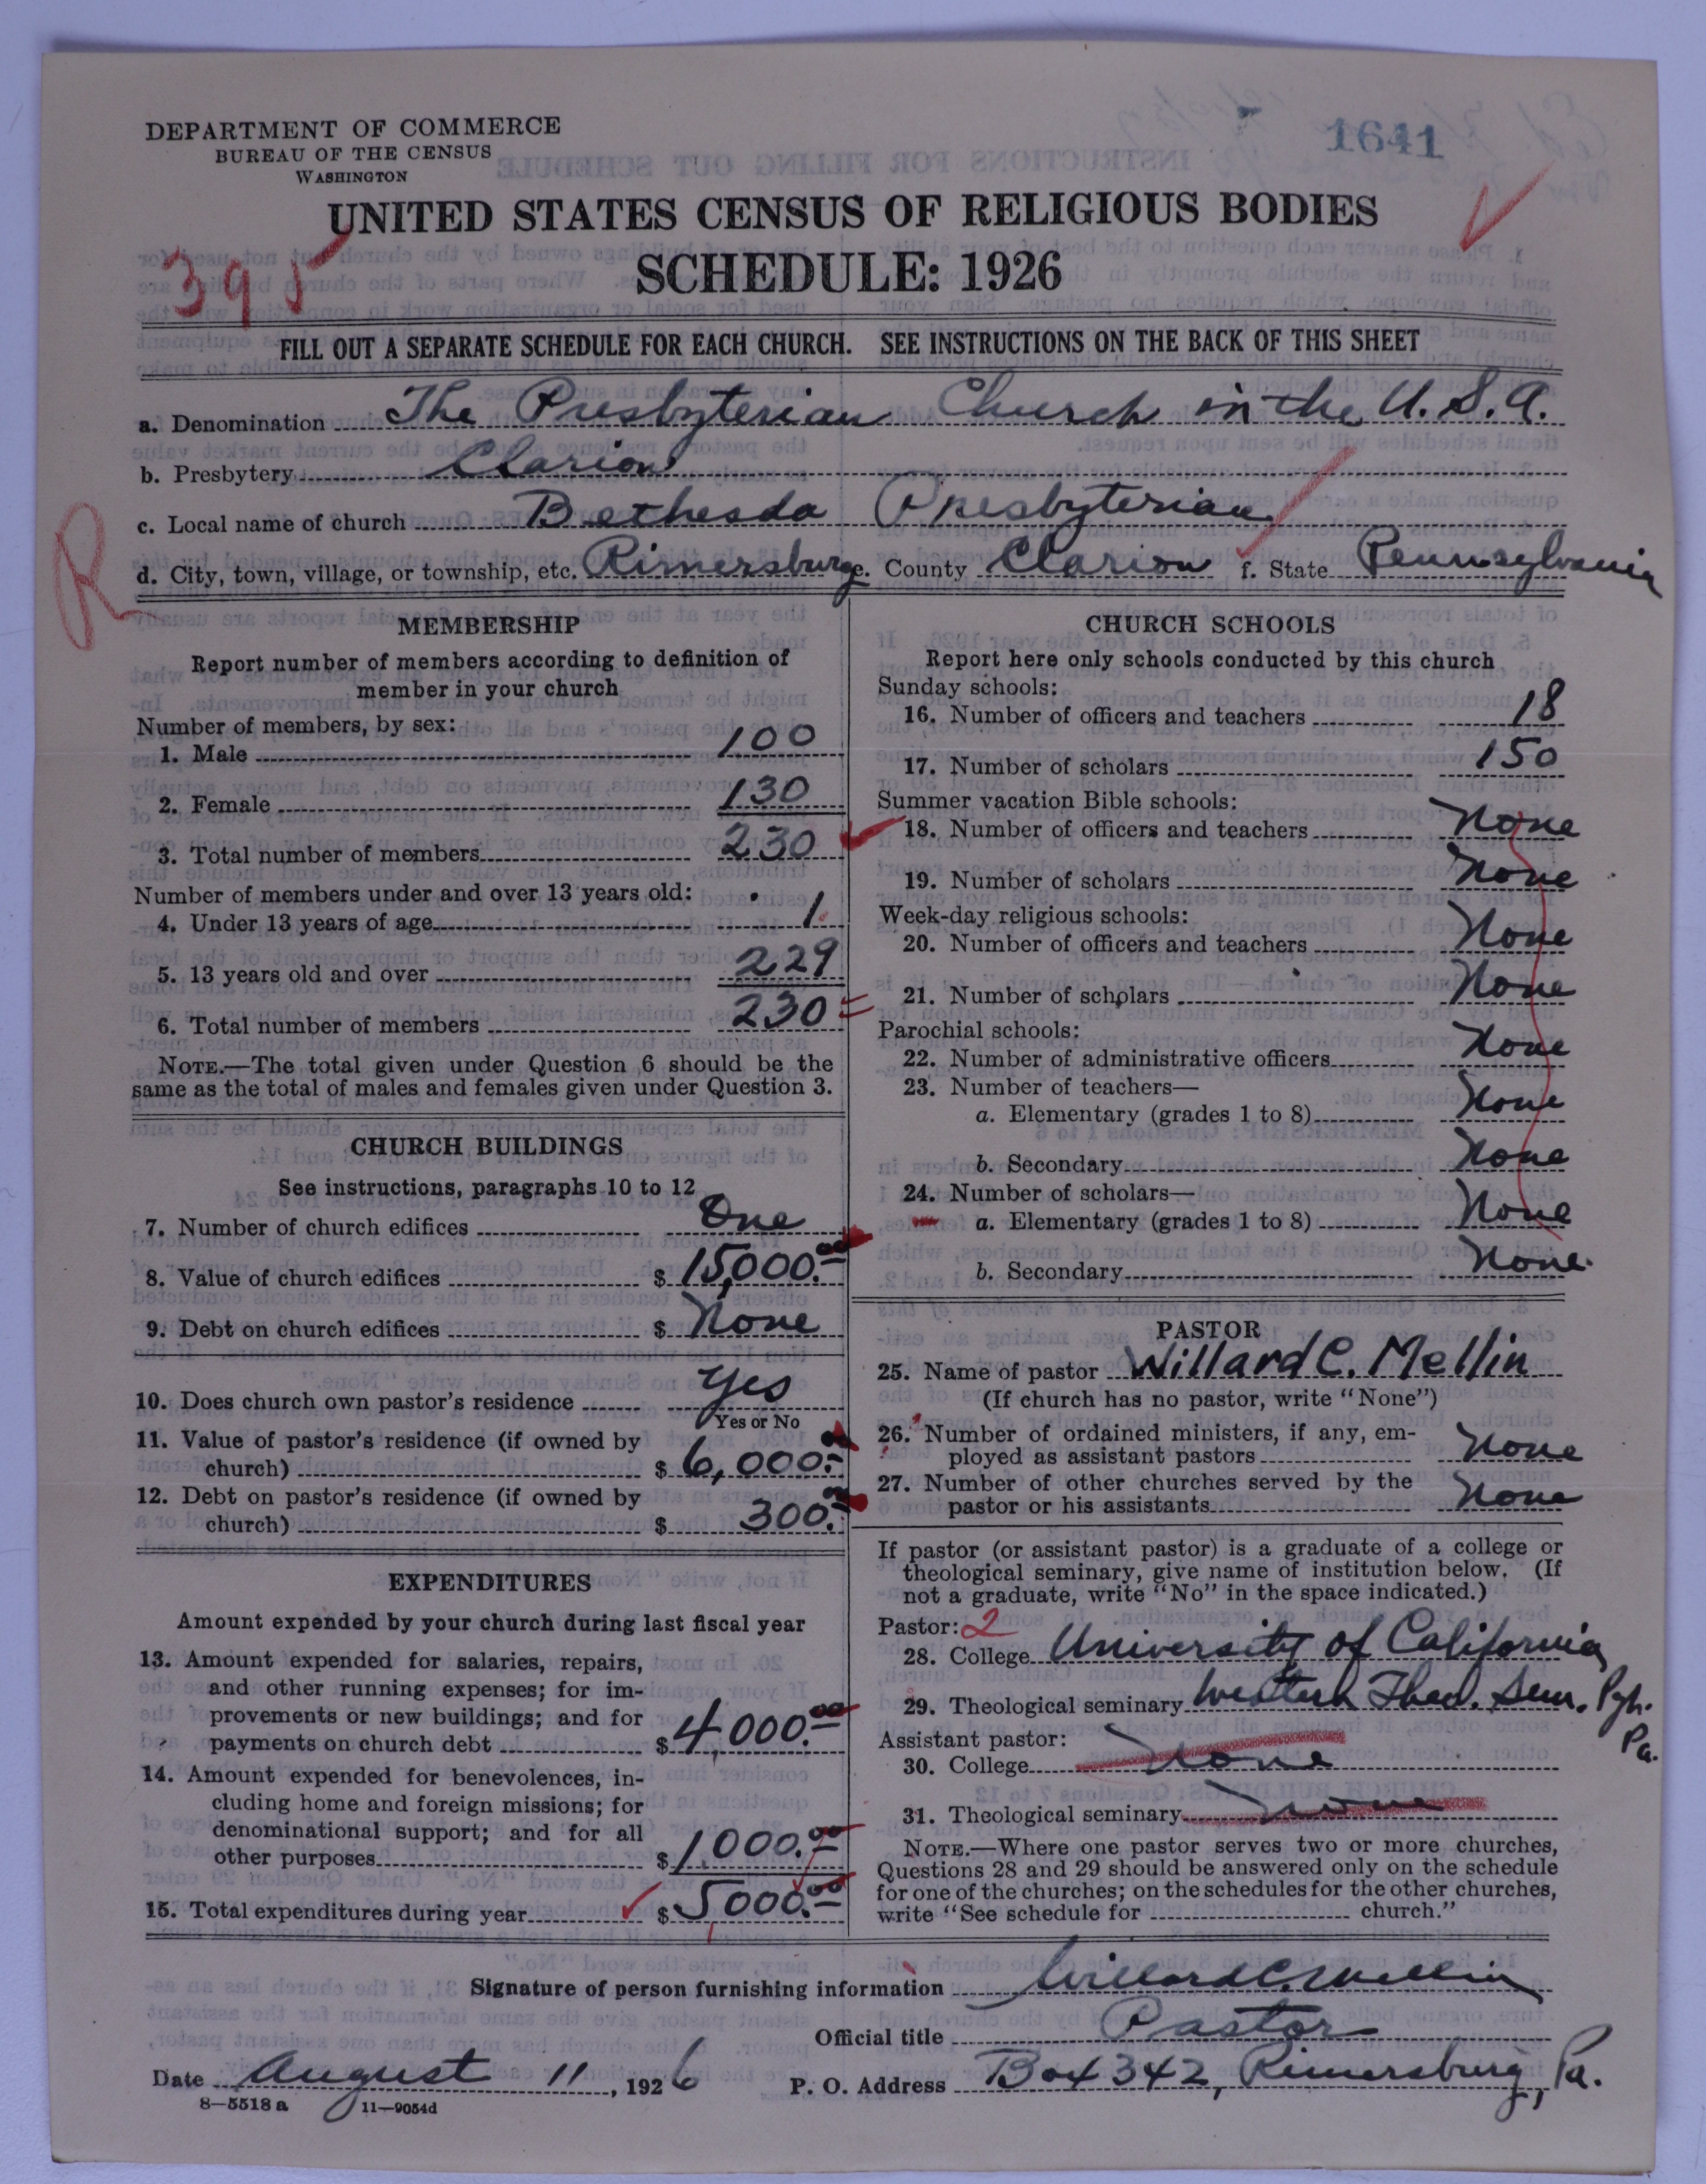 1641
DEPARTMENT OF COMMERCE
BUREAU OF THE CENSUS
WASHINGTON
UNITED STATES CENSUS OF RELIGIOUS BODIES
395
SCHEDULE: 1926
FILL OUT A SEPARATE SCHEDULE FOR EACH CHURCH. SEE INSTRUCTIONS ON THE BACK OF THIS SHEET
a. Denomination The Presbyterian Church in the U.S.A.
b. Presbytery Clarion
c. Local name of church Bethesda Presbyterian
R
d. City, town, village, or township, etc. Rimersburg e. County Clarion f. State Pennsylvania
MEMBERSHIP
Report number of members according to definition of
member in your church
Number of members, by sex:
1. Male 100
2. Female 130
3. Total number of members 230
Number of members under and over 13 years old:
4. Under 13 years of age 1
5. 13 years old and over 229
6. Total number of members 230
NOTE.—The total given under Question 6 should be the
same as the total of males and females given under Question 3.
CHURCH BUILDINGS
See instructions, paragraphs 10 to 12
7. Number of church edifices One
8. Value of church edifices $ 15,000.00
9. Debt on church edifices $ None
10. Does church own pastor's residence Yes
Yes or No
11. Value of pastor's residence (if owned by
church) $ 6,000.00
12. Debt on pastor's residence (if owned by
church) $ 300.00
EXPENDITURES
Amount expended by your church during last fiscal year
13. Amount expended for salaries, repairs,
and other running expenses; for im-
provements or new buildings; and for
payments on church debt $ 4,000.00
14. Amount expended for benevolences, in-
cluding home and foreign missions; for
denominational support; and for all
other purposes $ 1000.00
15. Total expenditures during year $ 5000.00
CHURCH SCHOOLS
Report here only schools conducted by this church
Sunday schools:
16. Number of officers and teachers 18
17. Number of scholars 150
Summer vacation Bible schools:
18. Number of officers and teachers None
19. Number of scholars None
Week-day religious schools:
20. Number of officers and teachers None
21. Number of scholars None
Parochial schools:
22. Number of administrative officers None
23. Number of teachers—
a. Elementary (grades 1 to 8) None
b. Secondary None
24. Number of scholars—
a. Elementary (grades 1 to 8) None
b. Secondary None.
PASTOR
25. Name of pastor Willard C. Mellin
(If church has no pastor, write "None")
26. Number of ordained ministers, if any, em-
ployed as assistant pastors None
27. Number of other churches served by the
pastor or his assistants None
If pastor (or assistant pastor) is a graduate of a college or
theological seminary, give name of institution below. (If
not a graduate, write "No" in the space indicated.)
Pastor: 2
28. College University of California
29. Theological seminary Western Theol. Sem. Pgh.
Pa.
Assistant pastor:
30. College None
31. Theological seminary None
NOTE.—Where one pastor serves two or more churches,
Questions 28 and 29 should be answered only on the schedule
for one of the churches; on the schedules for the other churches,
write "See schedule for church."
Signature of person furnishing information Willard C. Mellin
Official title Pastor
Date August 11, 1926 P. O. Address Box 342, Rimersburg, Pa.
8—5518a 11—9054d